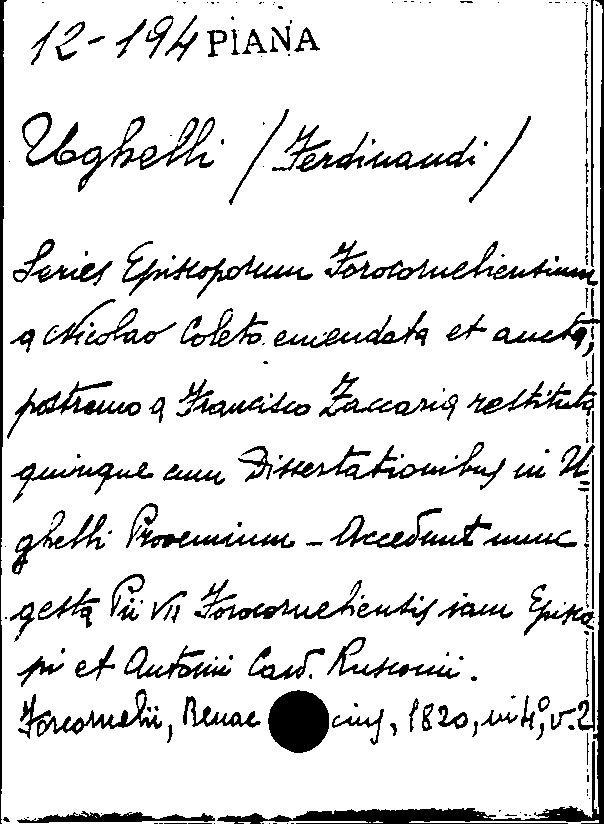 12-194 PIANA
Ughelli / Ferdinandi /
Series Episcoporum Forocorneliensium
a Nicolao Coleto emendata et aucta,
postremo a Francisco Zaccaria restituta
quinque cum Dissertationibus in U
ghelli Prooemium - Accedunt nunc
gesta Pii VII Forocorneliensis iam Episco
pi et Antonii Card. Rusconii.
Forcornelii, Benac cius, 1820, in 4°, v. 2